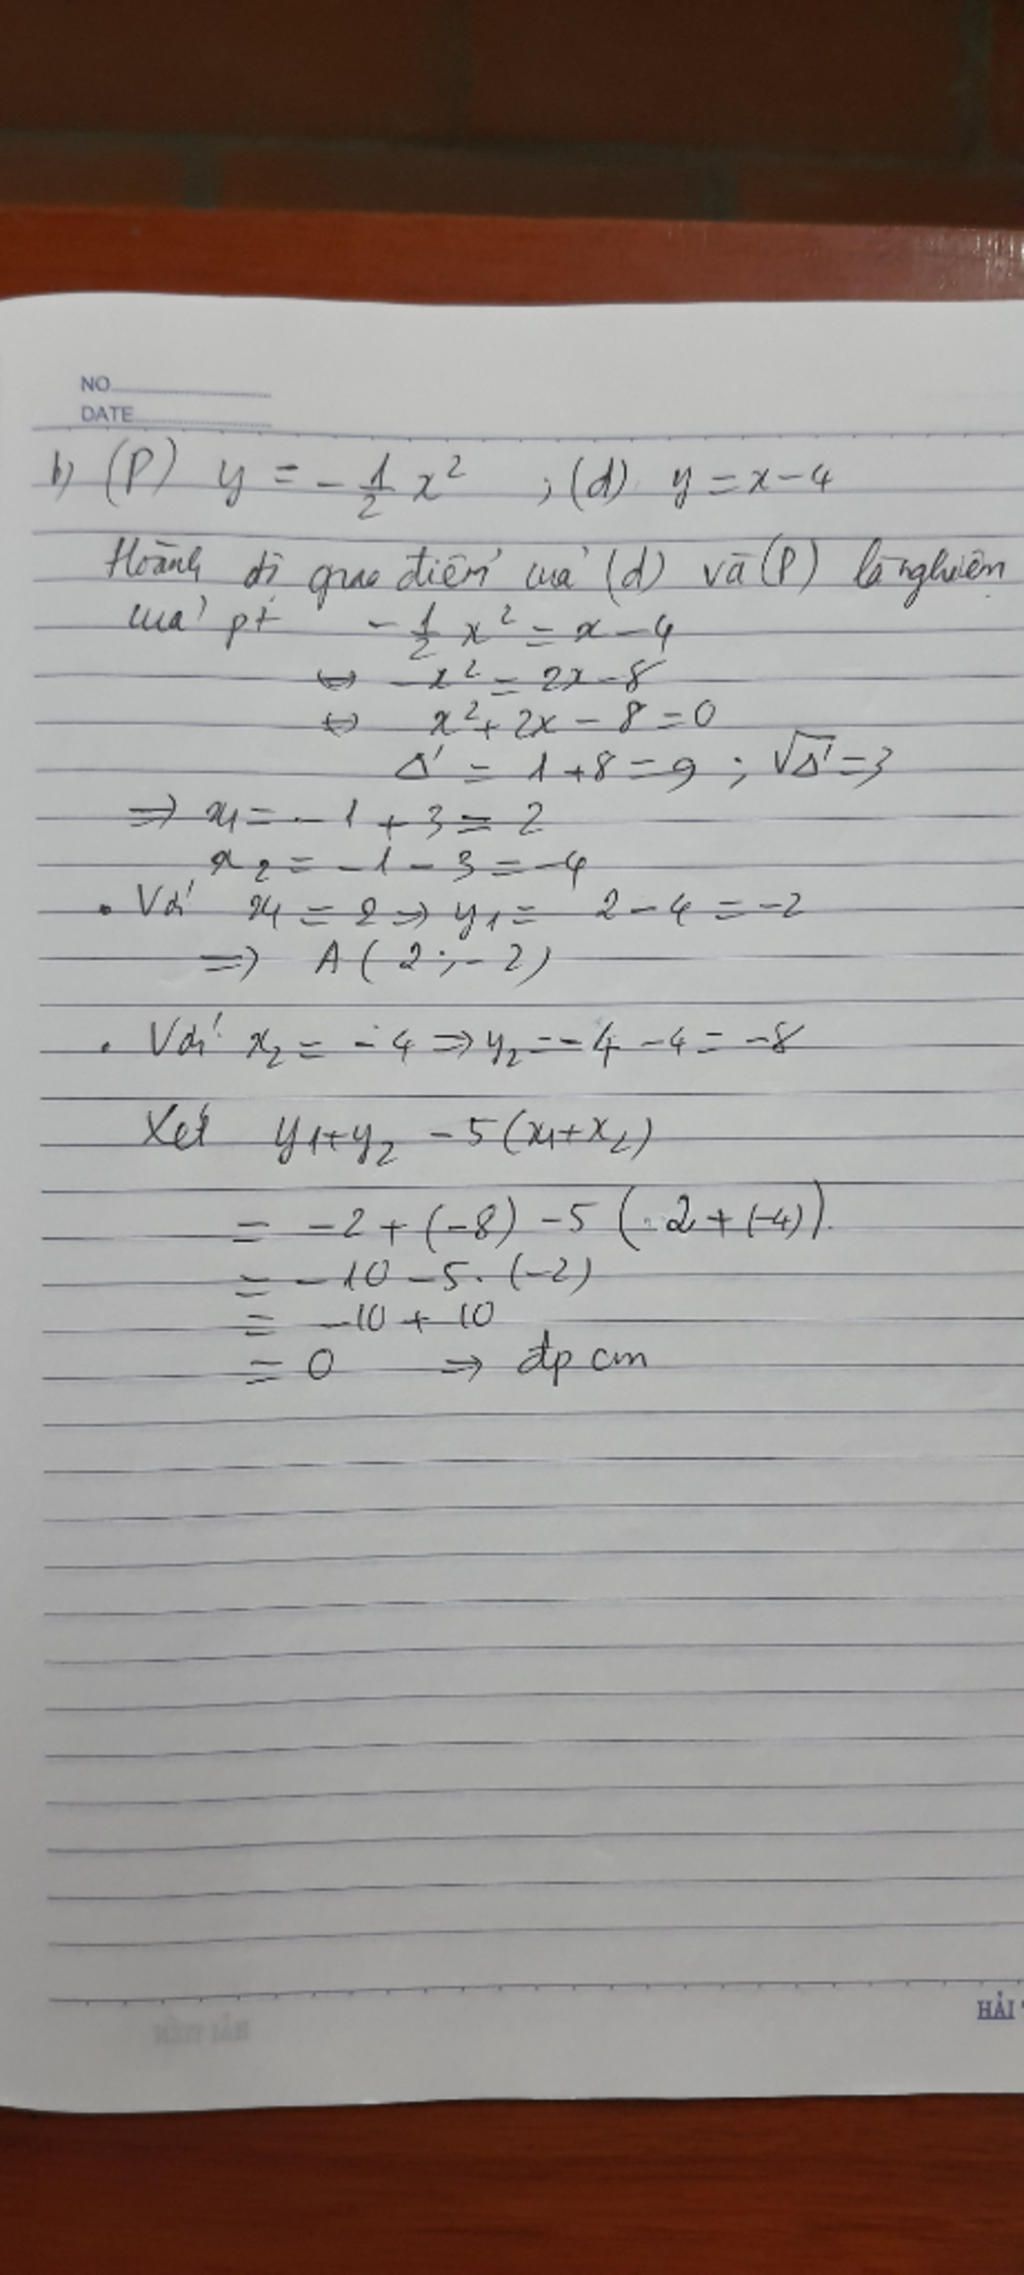 NO
DATE
b) (P) y = -1/2 x² ; (d) y = x - 4
Hoành độ giao điểm của (d) và (P) là nghiệm
của pt -1/2 x² = x - 4
⇔ -x² = 2x - 8
⇔ x² + 2x - 8 = 0
Δ' = 1 + 8 = 9 ; √Δ' = 3
⇒ x₁ = -1 + 3 = 2
x₂ = -1 - 3 = -4
• Với x₁ = 2 ⇒ y₁ = 2 - 4 = -2
⇒ A(2; -2)
• Với x₂ = -4 ⇒ y₂ = -4 - 4 = -8
Xét y₁+y₂ - 5(x₁+x₂)
= -2 + (-8) - 5(2 + (-4))
= -10 - 5.(-2)
= -10 + 10
= 0 ⇒ đpcm
HẢI